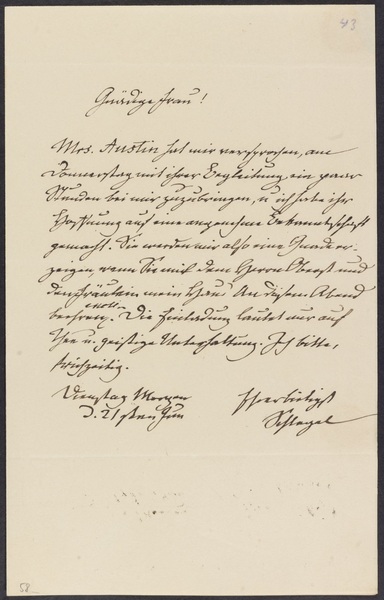 43
Gnädige Frau!
Mrs. Austin hat mir versprochen, am
Donnerstag mit ihrer Begleitung ein paar
Stunden bei mir zuzubringen, u ich habe ihr
Hoffnung auf eine angenehme Bekanntschaft
gemacht. Sie werden mir also eine Gnade er-
zeigen, wenn Sie mit dem Herrn Oberst und
den Fräulein mein Haus An diesem Abend
beehren. Die Einladung lautet nur auf
Thee u. geistige Unterhaltung. Ich bitte,
frühzeitig.
Dienstag Morgen
d. 21sten Jun
Ehrerbietigst
Schlegel
58